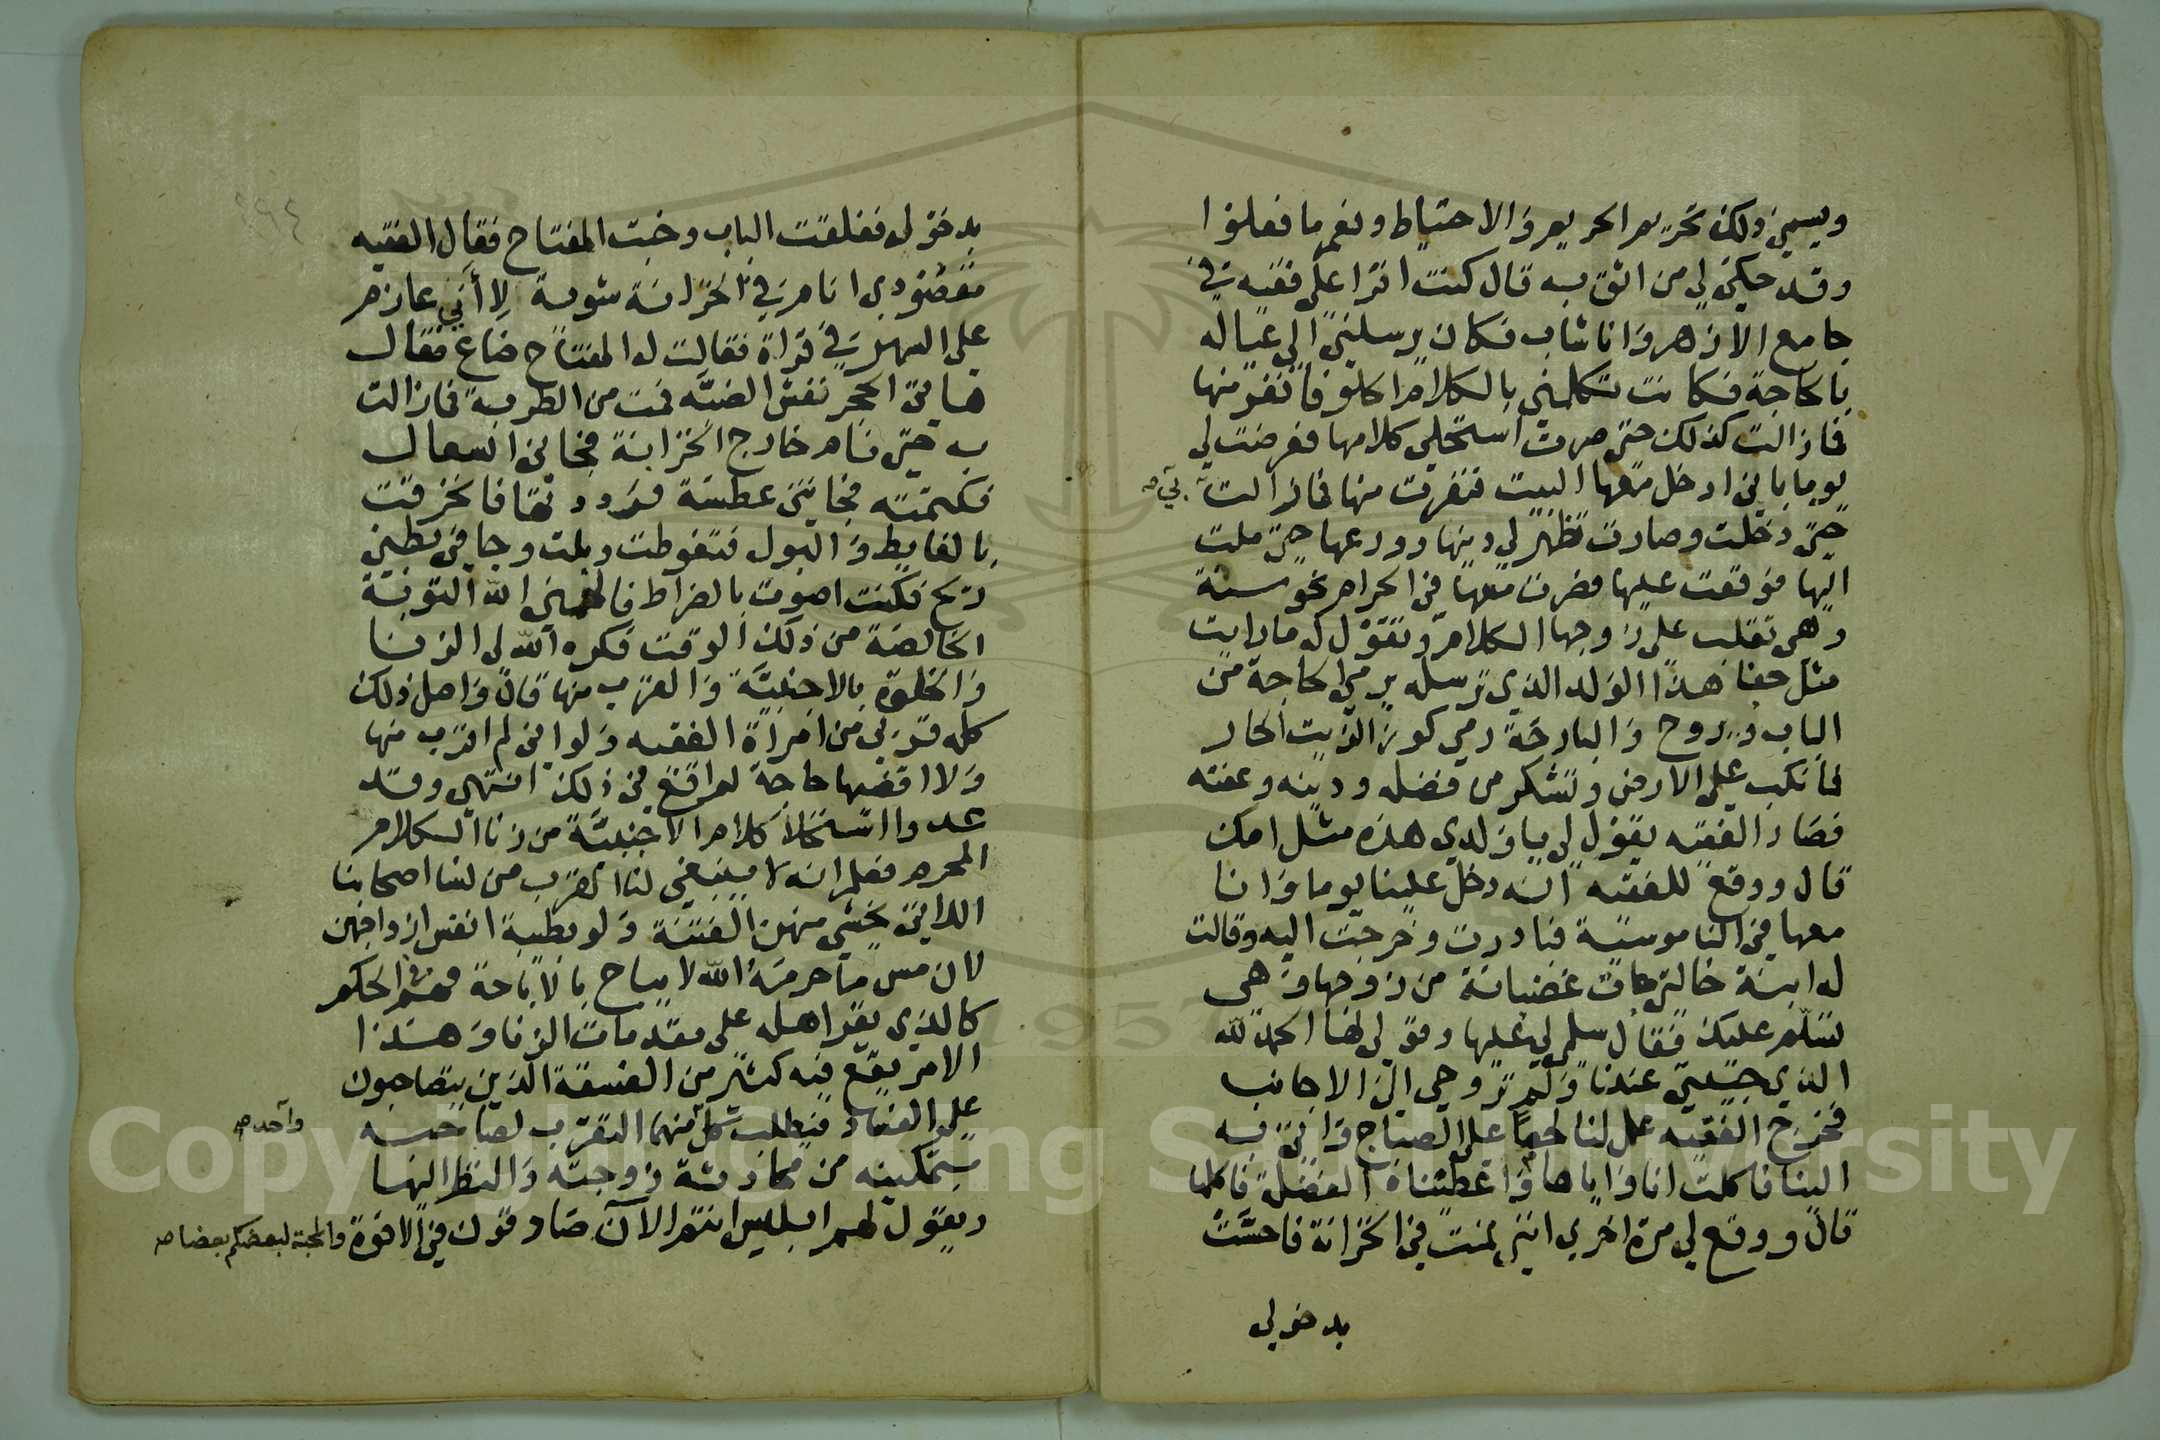 ويسمى ذلك تحريم الحريم والاحتياط ونعم ما فعلوا
وقد حكى لي من اثق به قال كنت اقرا على فقيه في
جامع الازهر وانا شاب فكان يرسلني الى عياله
بالحاجة فكانت تكلمني بالكلام الحلو فانفر منها
فما زالت كذلك حتى صرت استحلى كلامها فعرضت لي
يوما باني ادخل معها البيت فنفرت منها فما زالت بي صح
حتى دخلت وصارت تظهر لي دينها وورعها حتى ملت
اليها فوقعت عليها فصرت معها في الحرام نحو سنة
وهي تقلب على زوجها الكلام وتقول له ما رايت
مثل جفا هذا الولد الذي ترسله يرمي الحاجة من
الباب ويروح والبارحة رمى كوز الزيت الحار
فانكب على الارض وتشكر من فضله ودينه وعفته
فصار الفقيه يقول لي يا ولدي هذه مثل امك
قال ووقع للفقيه انه دخل علينا يوما وانا
معها في الناموسية فبادرت وخرجت اليه وقالت
له ابنة خالتي جات غضبانة من زوجها وهي
تسلم عليك فقال سلمي لي عليها وقولي لها الحمد لله
الذي جيتي عندنا ولم تروحي الى الاجانب
فخرج الفقيه عمل لنا لحما على الصباح واتى به
الينا فاكلت انا واياها واعطيناه الفضلة فاكلها
قال ووقع لي مرة اخرى انني نمت في الخزانة فاحست
بدخولي
بدخوله فغلقت الباب وخبت المفتاح فقال الفقيه
مقصودي انام في الخزانة شوية لأني عازم
على السهر في قراة فقالت له المفتاح ضاع فقال
هاتي الحجر نفش الضبة فمت من الطربة فما زالت
به حتى نام خارج الخزانة فجاني السعال
فكتمته فجاتني عطسة فرددتها فانخرقت
بالغايط والبول فتغوطت وبلت وجا في بطني
ريح فكنت اصوت بالضراط فالهمني الله التوبة
الخالصة من ذلك الوقت فكره الله لي الزنا
والخلوة بالاجنبية والقرب منها قال واصل ذلك
كله قربي من امراة الفقيه ولو اني لم اقرب منها
ولا اقضيها حاجة لم اقع في ذلك انتهى وقد
عدوا استحلا كلام الاجنبية من زنا الكلام
المحرم فعلم انه لا ينبغي لنا القرب من نسا اصحابنا
اللاتي نخشى منهن الفتنة ولو بطيبة انفس ازواجهن
لان مس ما حرمه الله لا يباح بالاباحة فهم في الحكم
كالذي يقر اهله على مقدمات الزنا وهذا
الامر يقع فيه كثير من الفسقة الذين يتصاحبون
على الفساد فيطلب كل منهما التقرب لصاحبه واحد صح
بتمكينه من محادثة زوجته والنظر اليها
ويقول لهم ابليس انتم الآن صادقون في الاخوة والمحبة لبعضكم بعضا صح